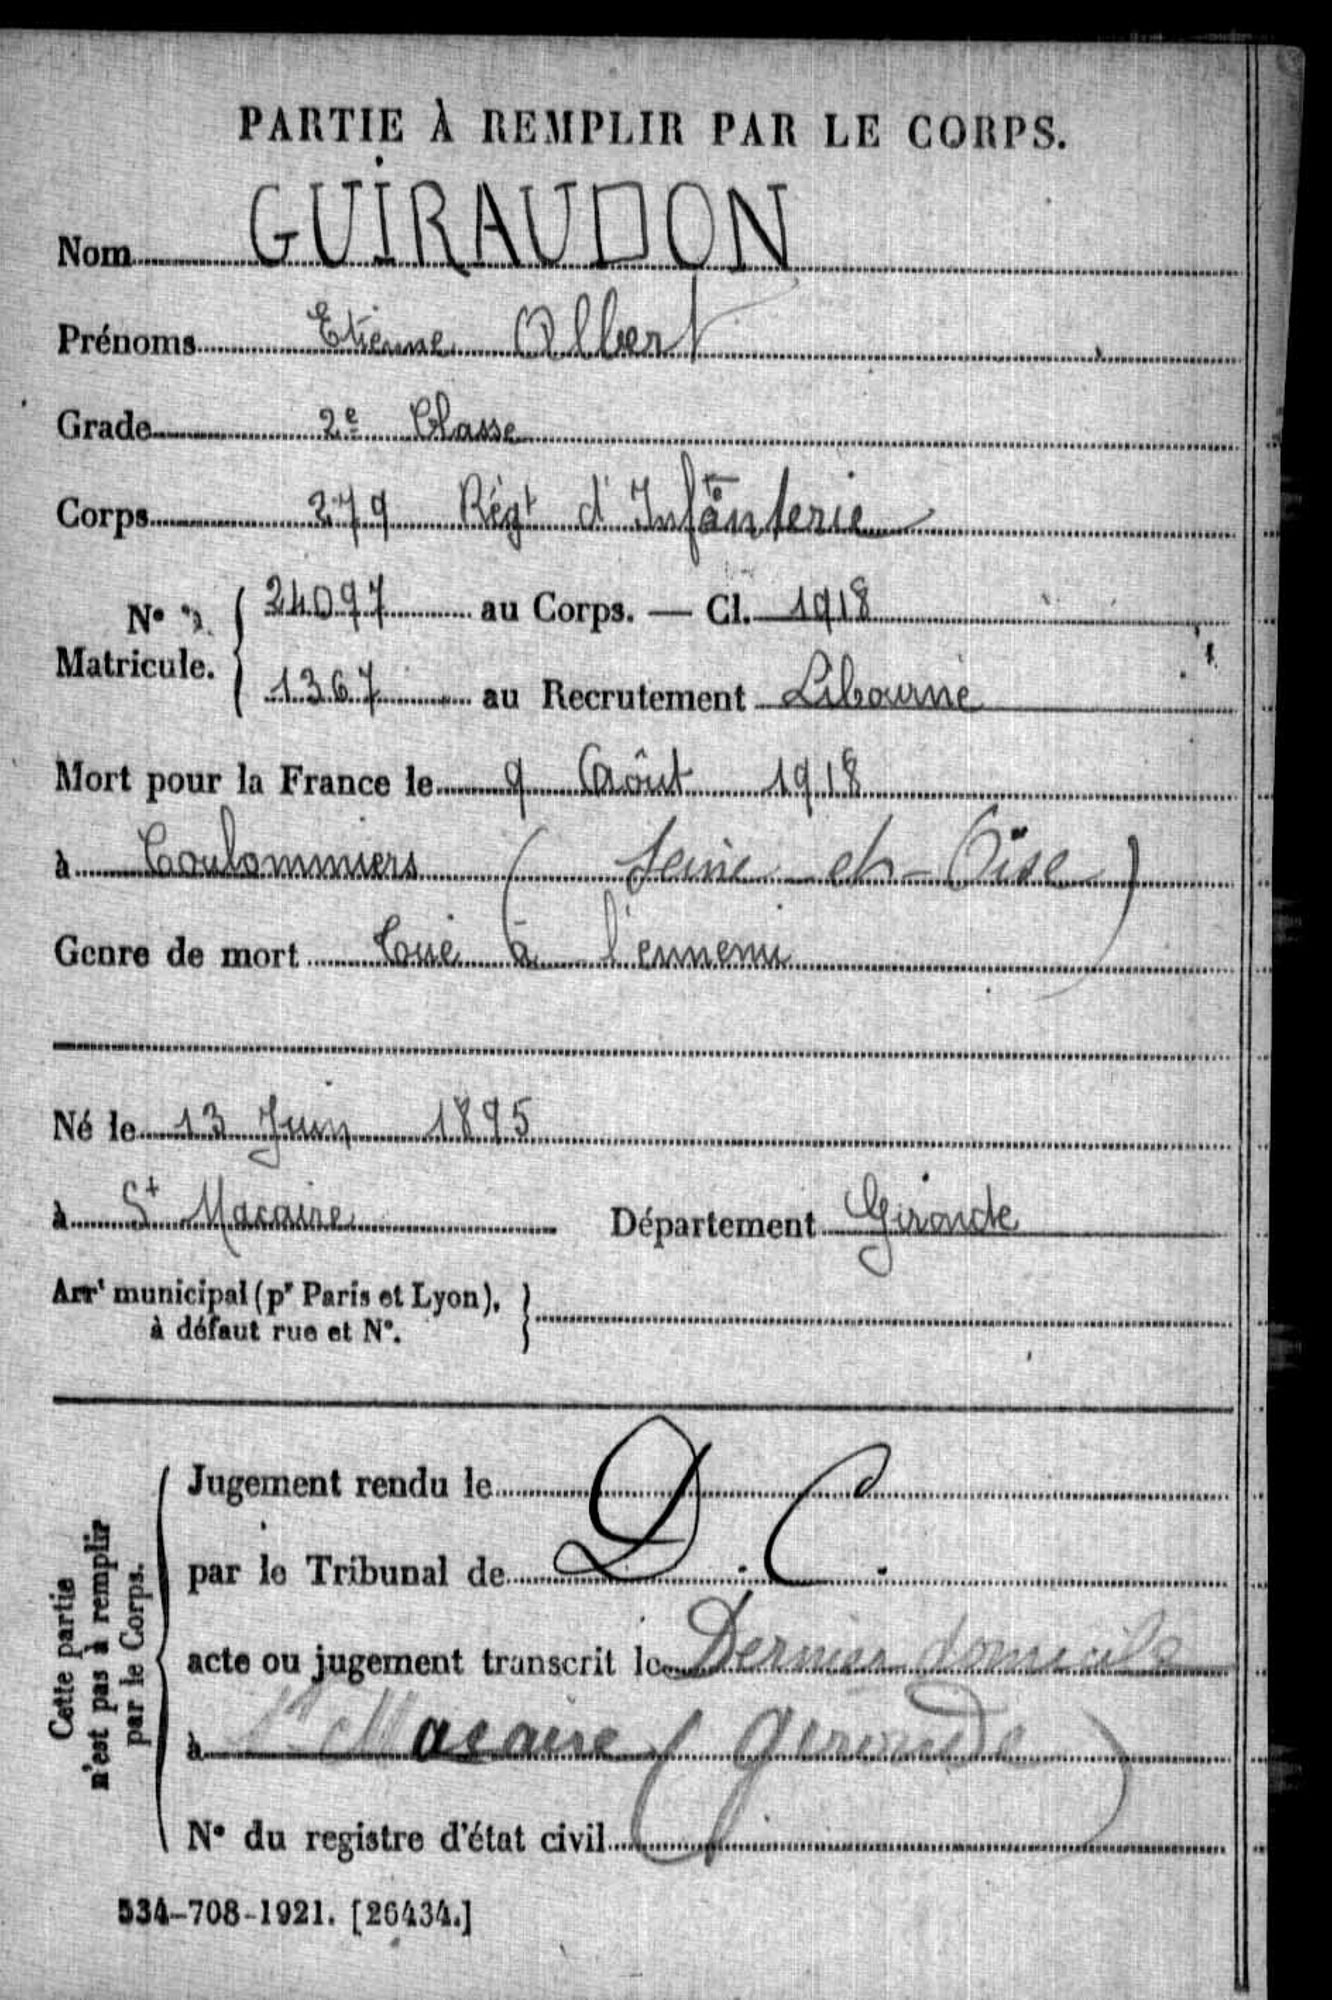 PARTIE À REMPLIR PAR LE CORPS.
Nom GUIRAUDON
Prénoms Etienne Albert
Grade 2e Classe
Corps 279 Régt d'Infanterie
No Matricule. 24097 au Corps. — Cl. 1918
1367 au Recrutement Libourne
Mort pour la France le 9 Août 1918
à Coulommiers (Seine-et-Oise)
Genre de mort Tué à l'ennemi
Né le 13 Juin 1895
à St Macaire Département Gironde
Arrt municipal (pr Paris et Lyon),
à défaut rue et No.
Cette partie
n'est pas à remplir
par le Corps.
Jugement rendu le
par le Tribunal de D. C.
acte ou jugement transcrit le Dernier domicile
à St Macaire (Gironde)
No du registre d'état civil
534-708-1921. [26434.]